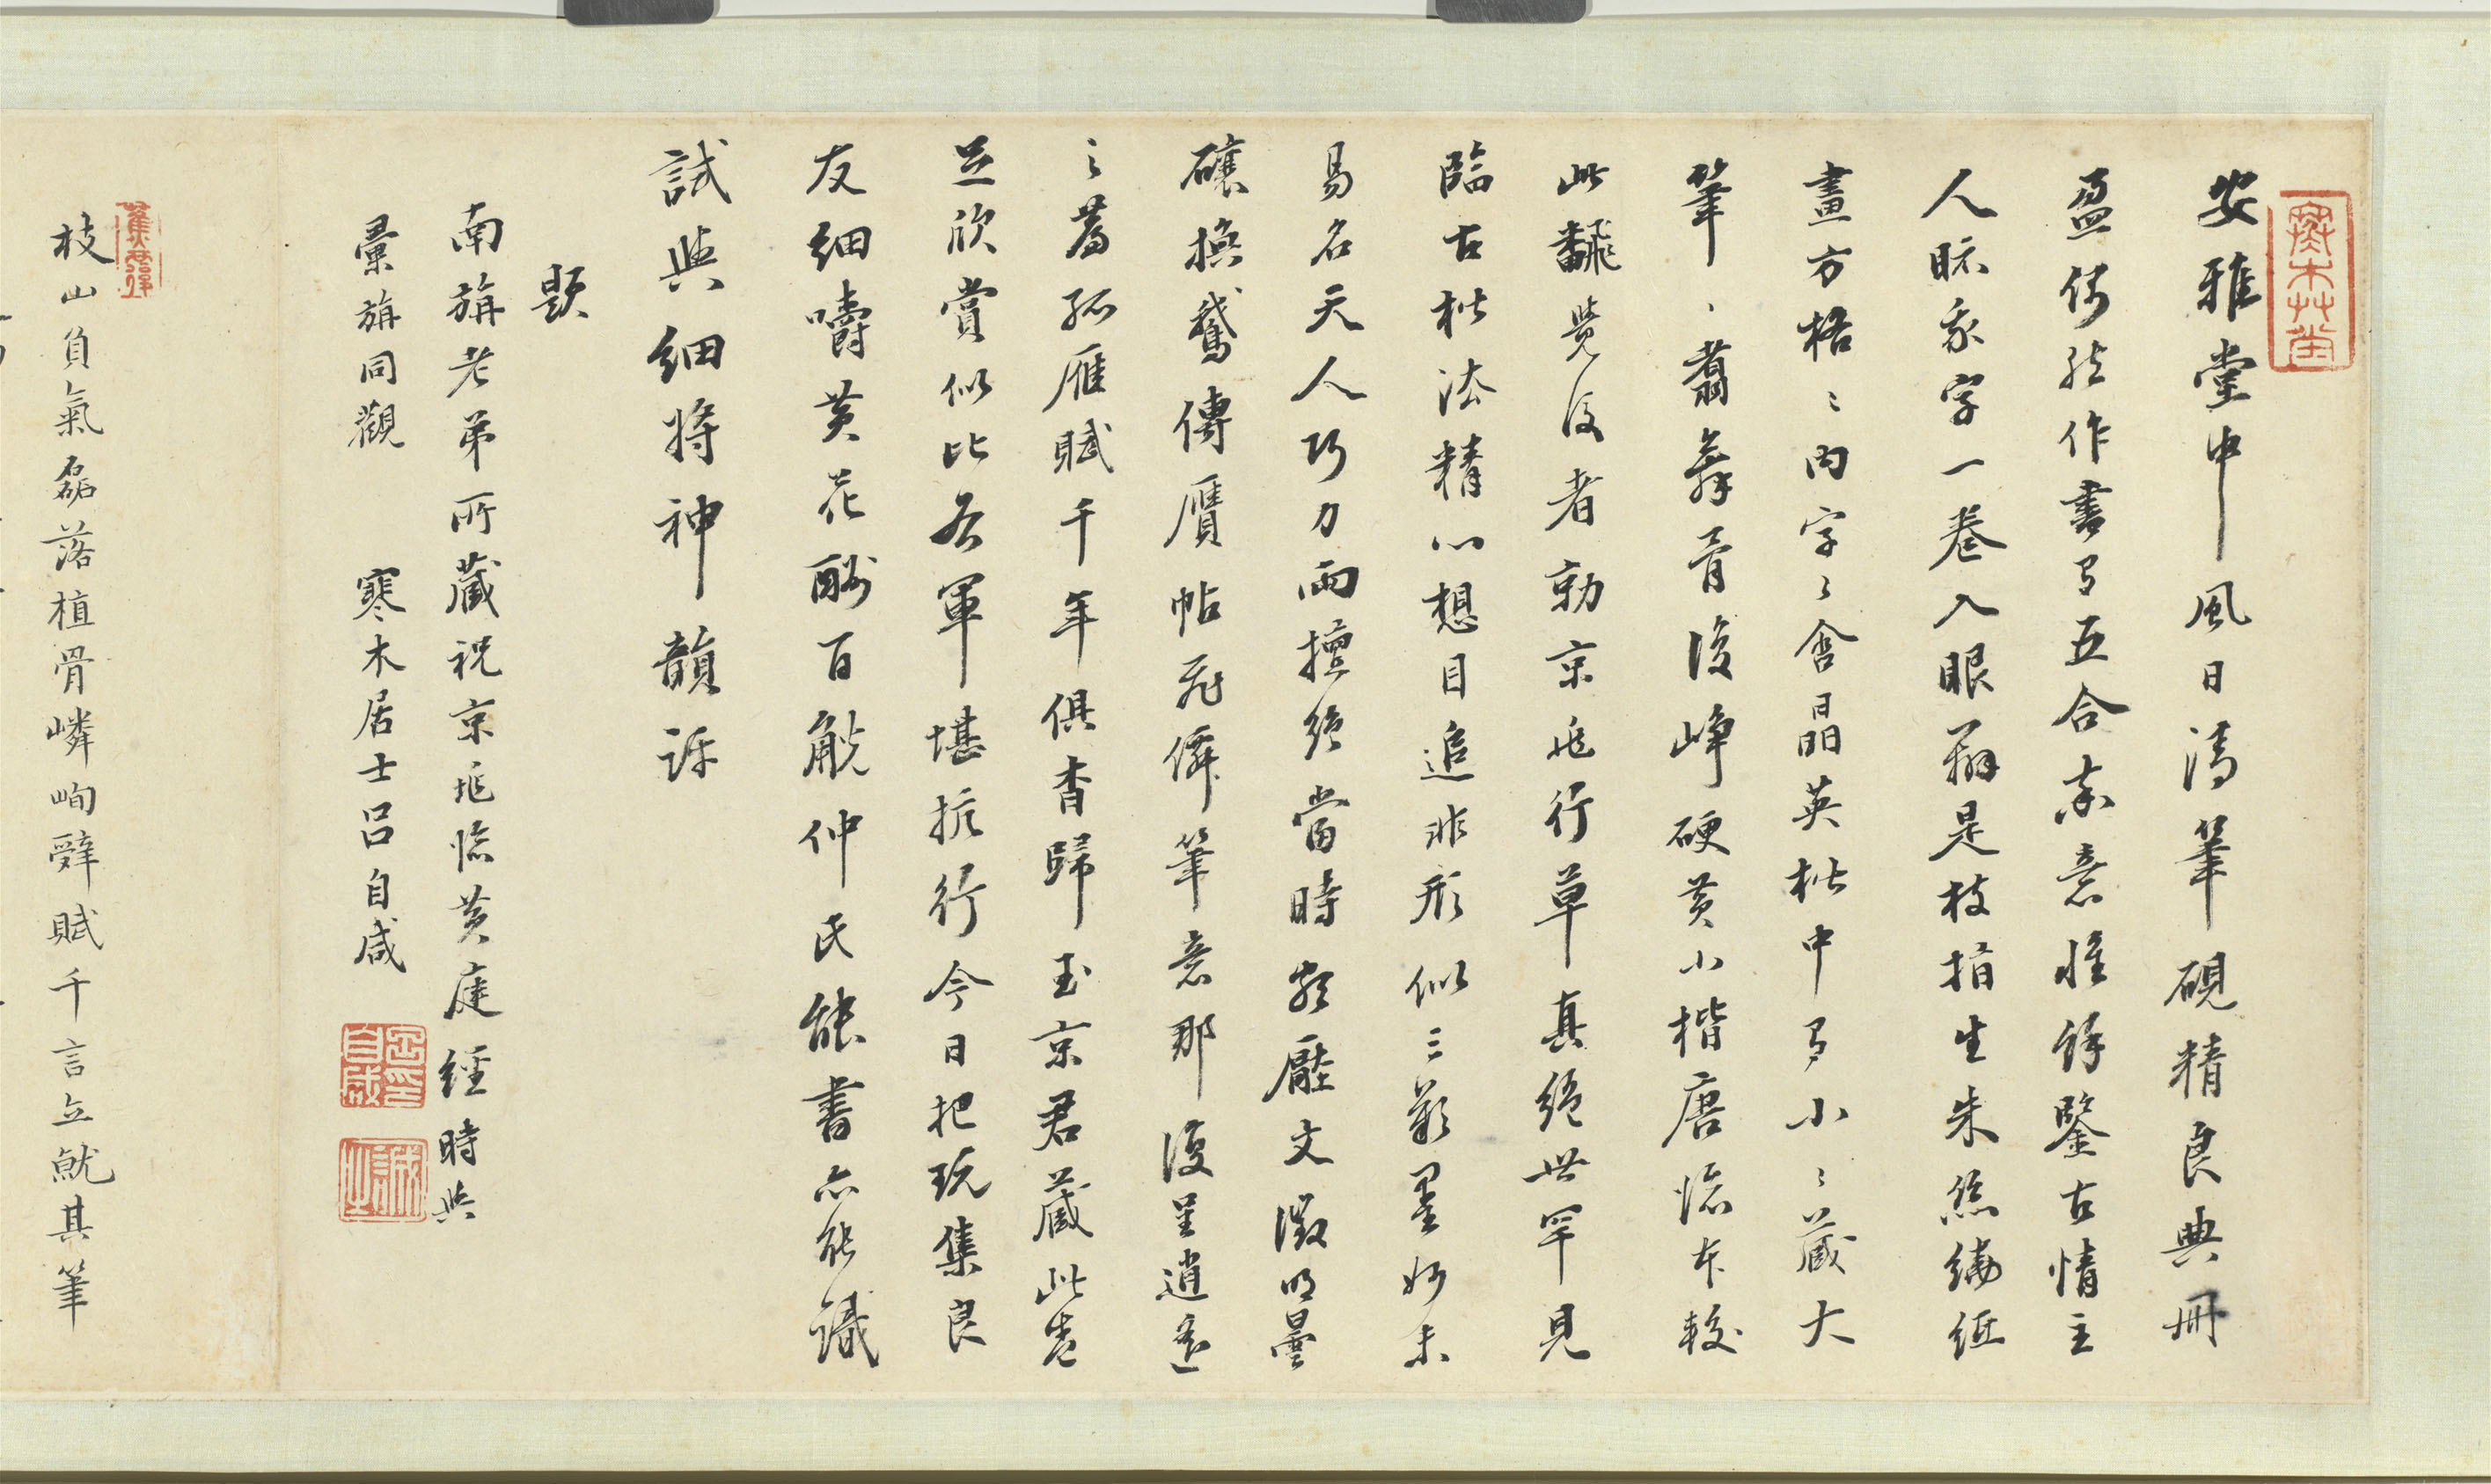 安雅堂中風日清筆硯精良典冊
盈倚能作書有五合乖意惟餘鑒古情主
人眎我字一卷入眼辨是枝指生朱絲繡絍
畫方格〻內字〻含晶英楷中有小〻藏大
筆〻翥舞骨復崢硬黃小楷唐臨本較
此飜覺後者勍京兆行草真絕世罕見
臨古楷法精心想目追非形似三薰墨妙未
易名天人巧力兩擅絕當時頗壓文徵明曇
礦換鵞傳贋帖飛僊筆意那復呈逍遙
〻薦孤雁賦千年俱杳歸玉京君藏此卷
足欣賞似比右軍堪抗行今日把玩集良
友細嚼黃花酬百觥仲氏能書亦能識
試與細將神韻評
題
南旃老弟所藏祝京兆臨黃庭經時與
彙旃同觀 寒木居士呂自咸
枝山負氣磊落植骨嶙峋辭賦千言立就其筆